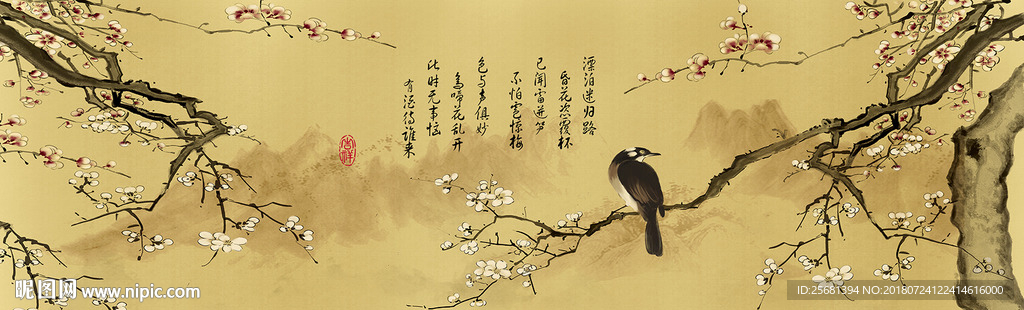 漂泊迷归路
昏花恣覆杯
已闻雷迸笋
不怕雹惊梅
色与声俱妙
鸟啼花乱开
此时无事恼
有酒待谁来
吉祥
昵图网 www.nipic.com
ID:25681394 NO:20180724122414616000